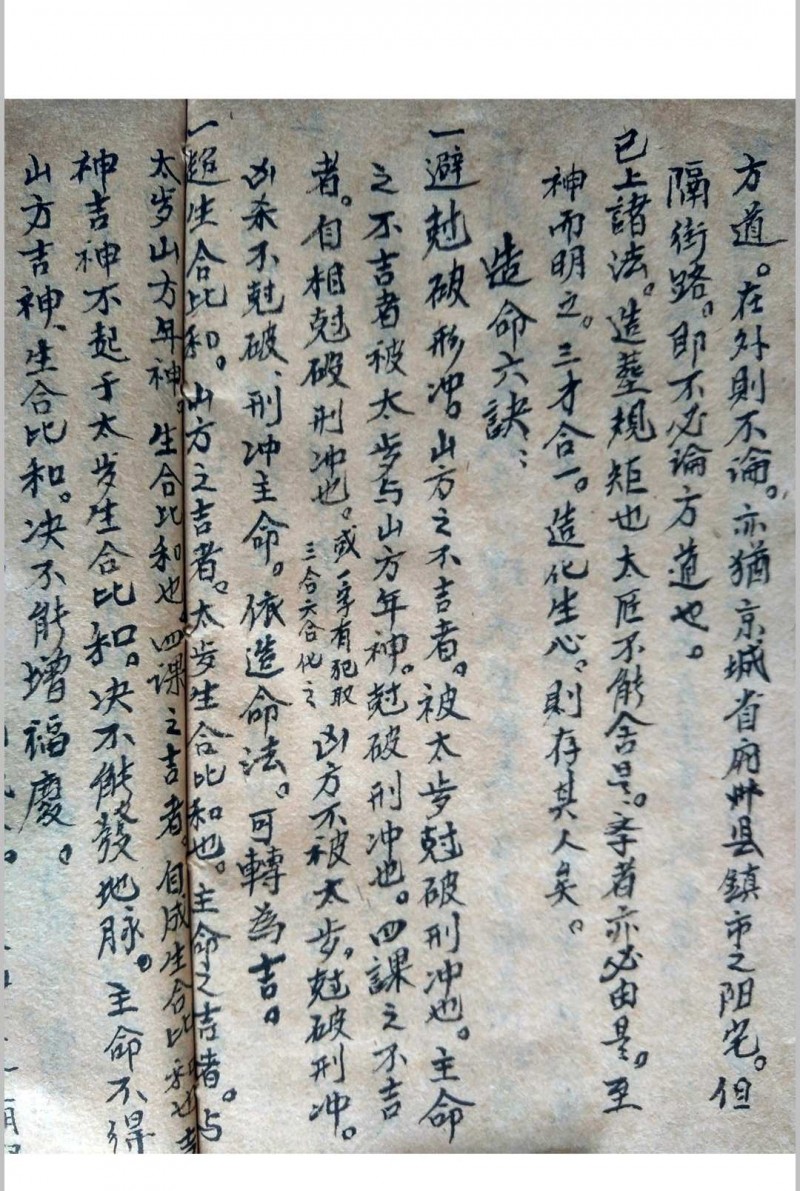 方道。在外則不論。亦猶京城省府州县鎮市之阳宅。但
隔街路。即不必論方道也。
已上諸法。造塟規矩也太匠不能舍是。李者亦必由是。至
神而明之。三才合一。造化生心。則存其人矣。
造命六訣：
一避尅破形冲。山方之不吉者。被太步尅破刑冲也。主命
之不吉者被太步与山方年神。尅破刑冲也。四課之不吉
者。自相尅破刑冲也。或有犯取
三合六合化之
凶方不被太步。尅破刑冲。
凶杀不尅破、刑冲主命。依造命法。可轉為吉。
一趨生合比和。山方之吉者。太步生合比和也。主命之吉者。与
太岁山方年神。生合比和也。四課之吉者。自成生合比和也
神吉神不起于太步生合比和。决不能發地脉。主命不得
山方吉神、生合比和。决不能增福慶。